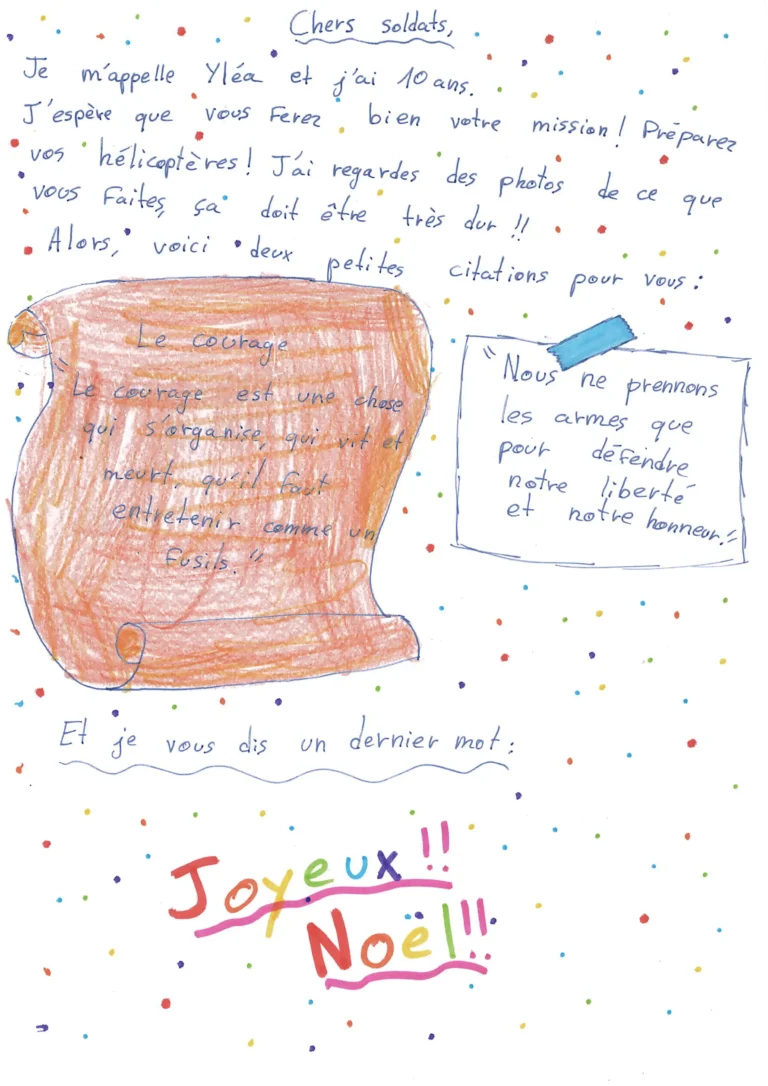 Chers soldats,
Je m'appelle Yléa et j'ai 10 ans.
J'espère que vous Ferez bien votre mission! Préparez
vos hélicoptères! J'ai regardes des photos de ce que
vous Faites, ça doit être très dur !!
Alors, voici deux petites citations pour vous :
Le courage
"Le courage est une chose
qui s'organise, qui vit et
meurt, qu'il faut
entretenir comme un
fusils."
"Nous ne prennons
les armes que
pour défendre
notre liberté
et notre honneur."
Et je vous dis un dernier mot :
Joyeux !!
Noël!!